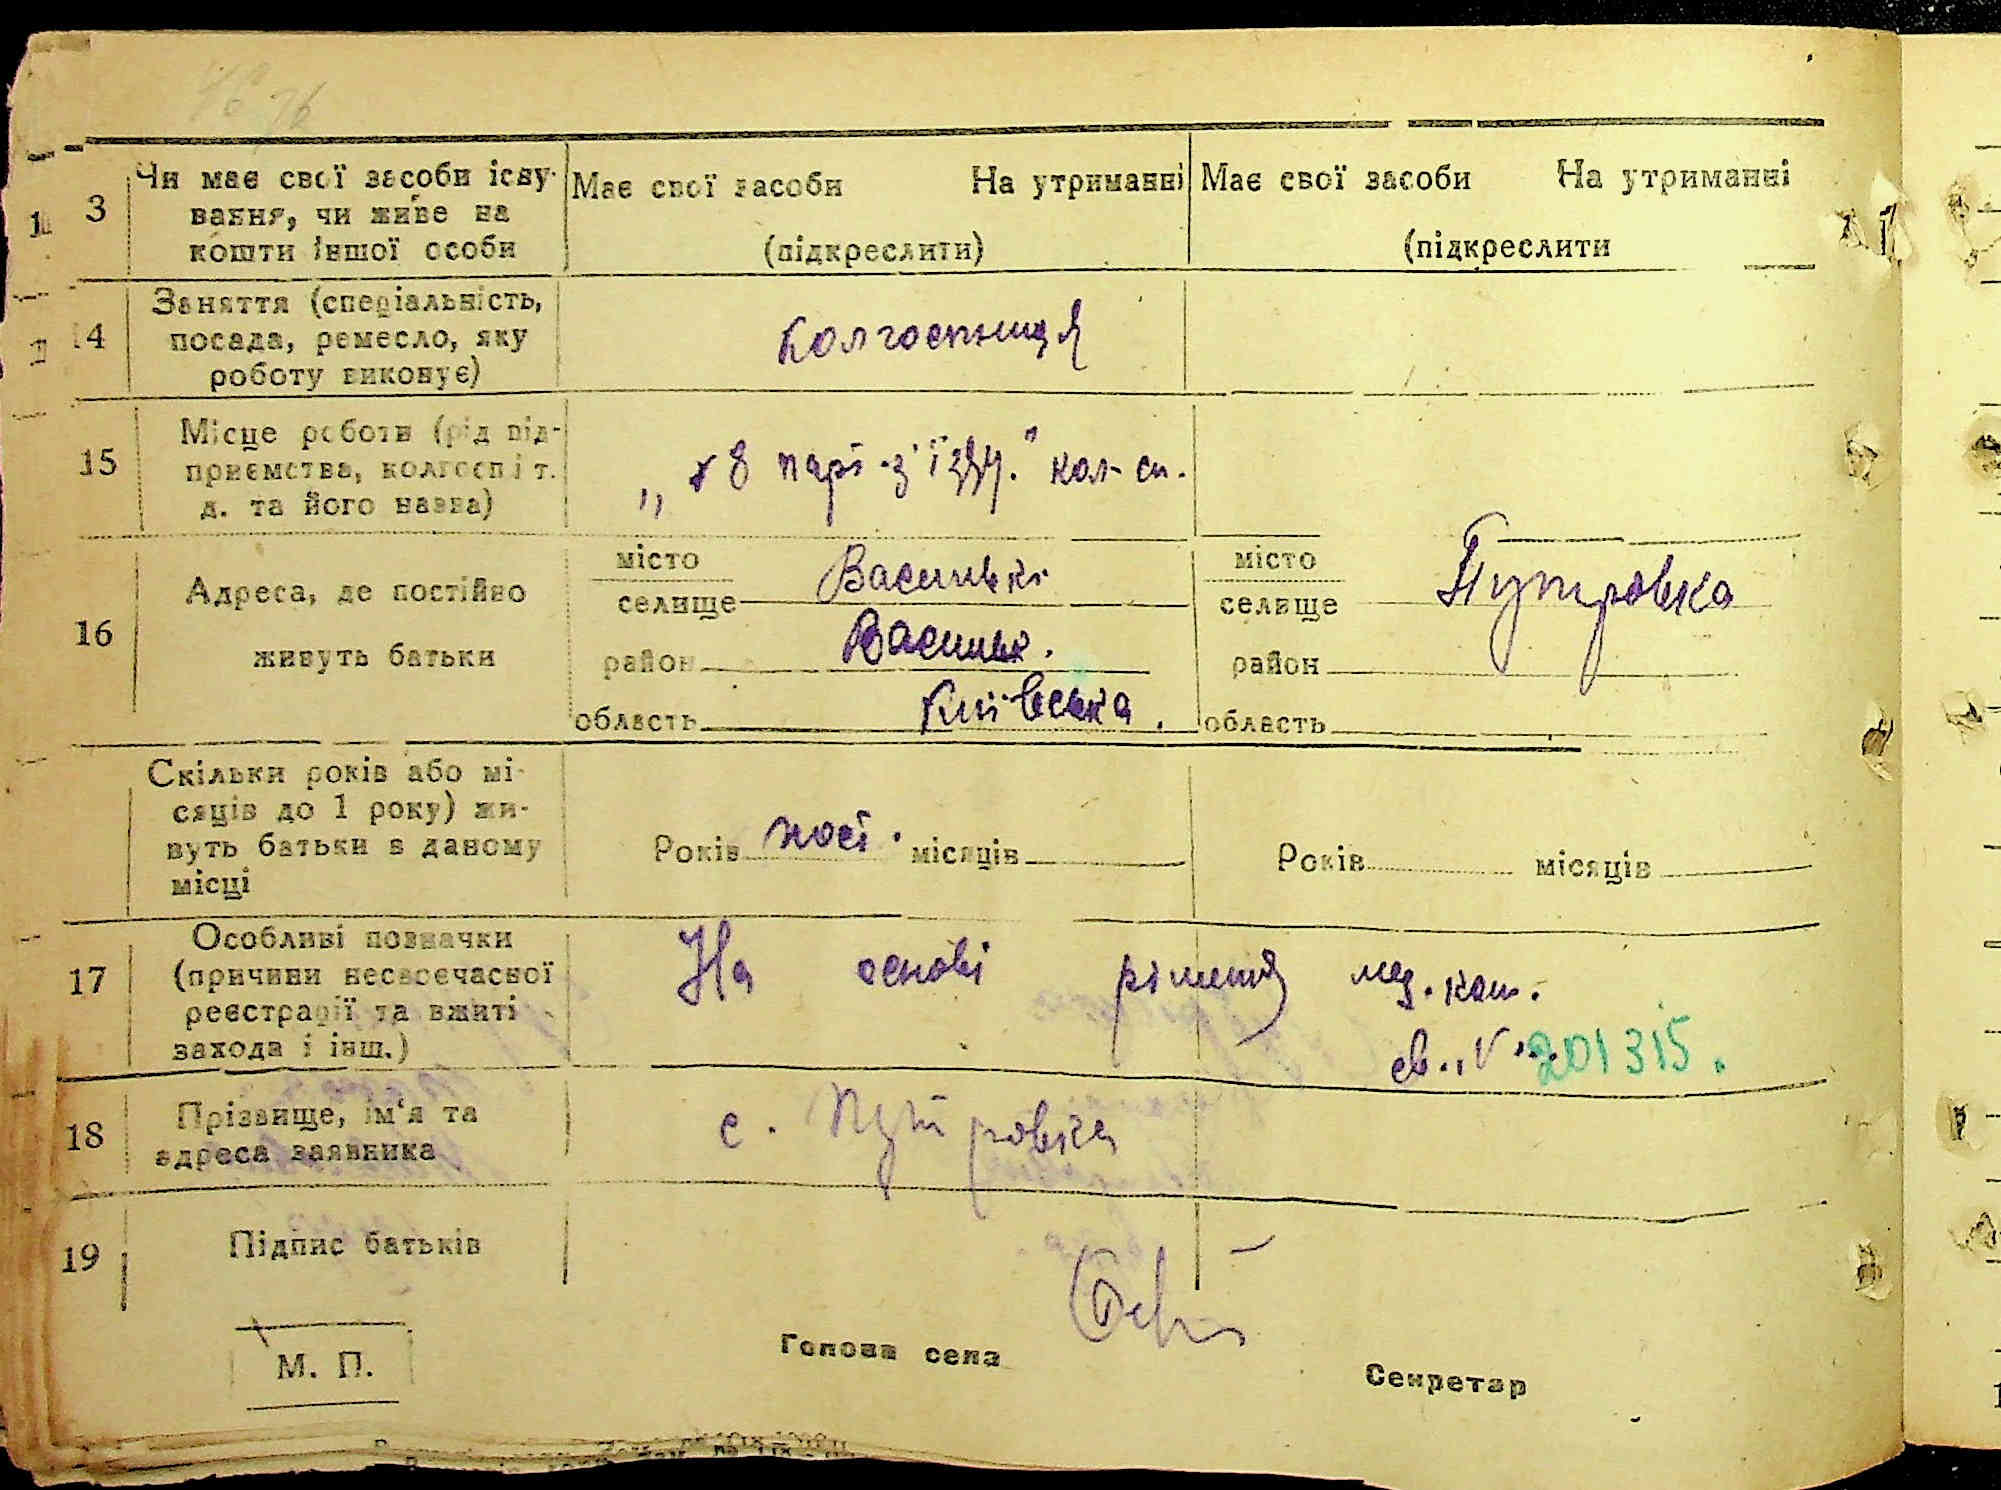 76
3
Чи має свої засоби існу-
вання, чи живе на
кошти іншої особи
Має свої засоби На утриманні
(підкреслити)
Має свої засоби На утриманні
(підкреслити
14
Заняття (спеціальність,
посада, ремесло, яку
роботу виконує)
Колгоспниця
15
Місце роботи (рід під-
приємства, колгосп і т.
д. та його назва)
„ 18 парт-з'їзду." кол-сп.
16
Адреса, де постійно
живуть батьки
місто
селище Васильків
район Васильк.
область Київська.
місто
селище Путровка
район
область
Скільки років або мі-
сяців до 1 року) жи-
вуть батьки в даному
місці
Років пост. місяців
Років місяців
17
Особливі позначки
(причини несвоєчасної
реєстрації та вжиті
захода і інш.)
На основі рішення мед. ком.
св. „V" 201315.
18
Прізвище, ім'я та
адреса заявника
с. Путровка
19
Підпис батьків
М. П.
Голова села
Секретар